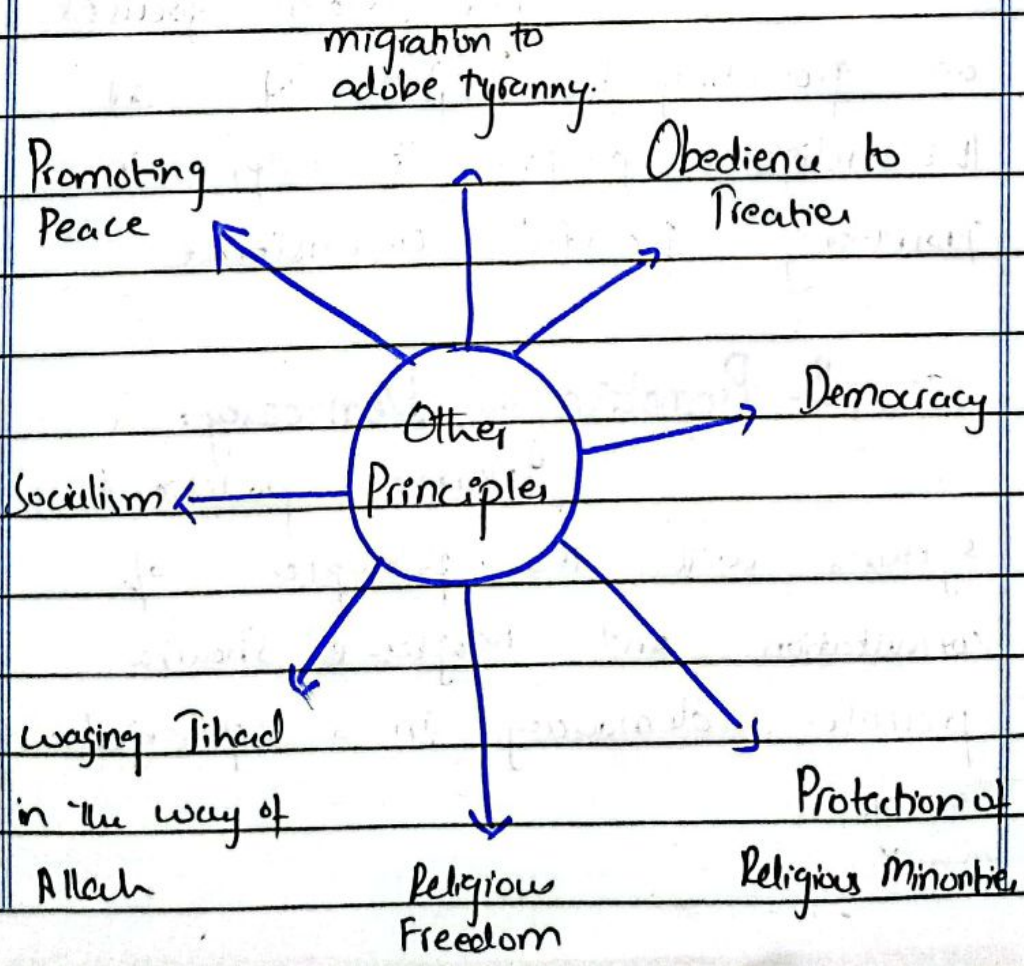 migration to
adobe tyranny.
Promoting
Peace
Obedience to
Treaties
Democracy
Other
Principles
Socialism
waging Jihad
in the way of
Allah
Protection of
Religious Minorities
Religious
Freedom